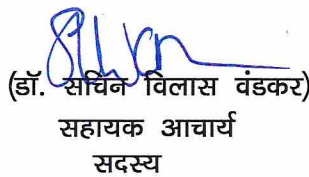 (डॉ. सचिन विलास वंडकर)
सहायक आचार्य
सदस्य